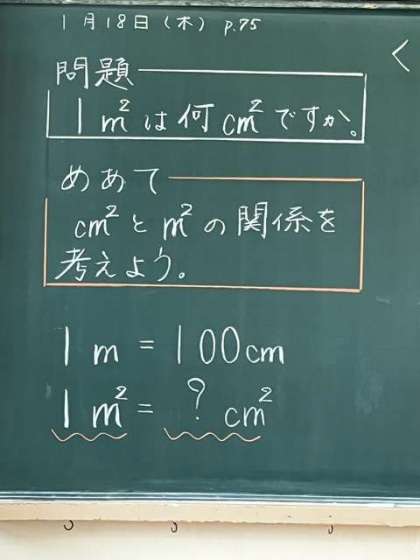 1月18日(木) p.75
問題
1m²は何cm²ですか。
めあて
cm²とm²の関係を
考えよう。
1m = 100cm
1m² = ? cm²